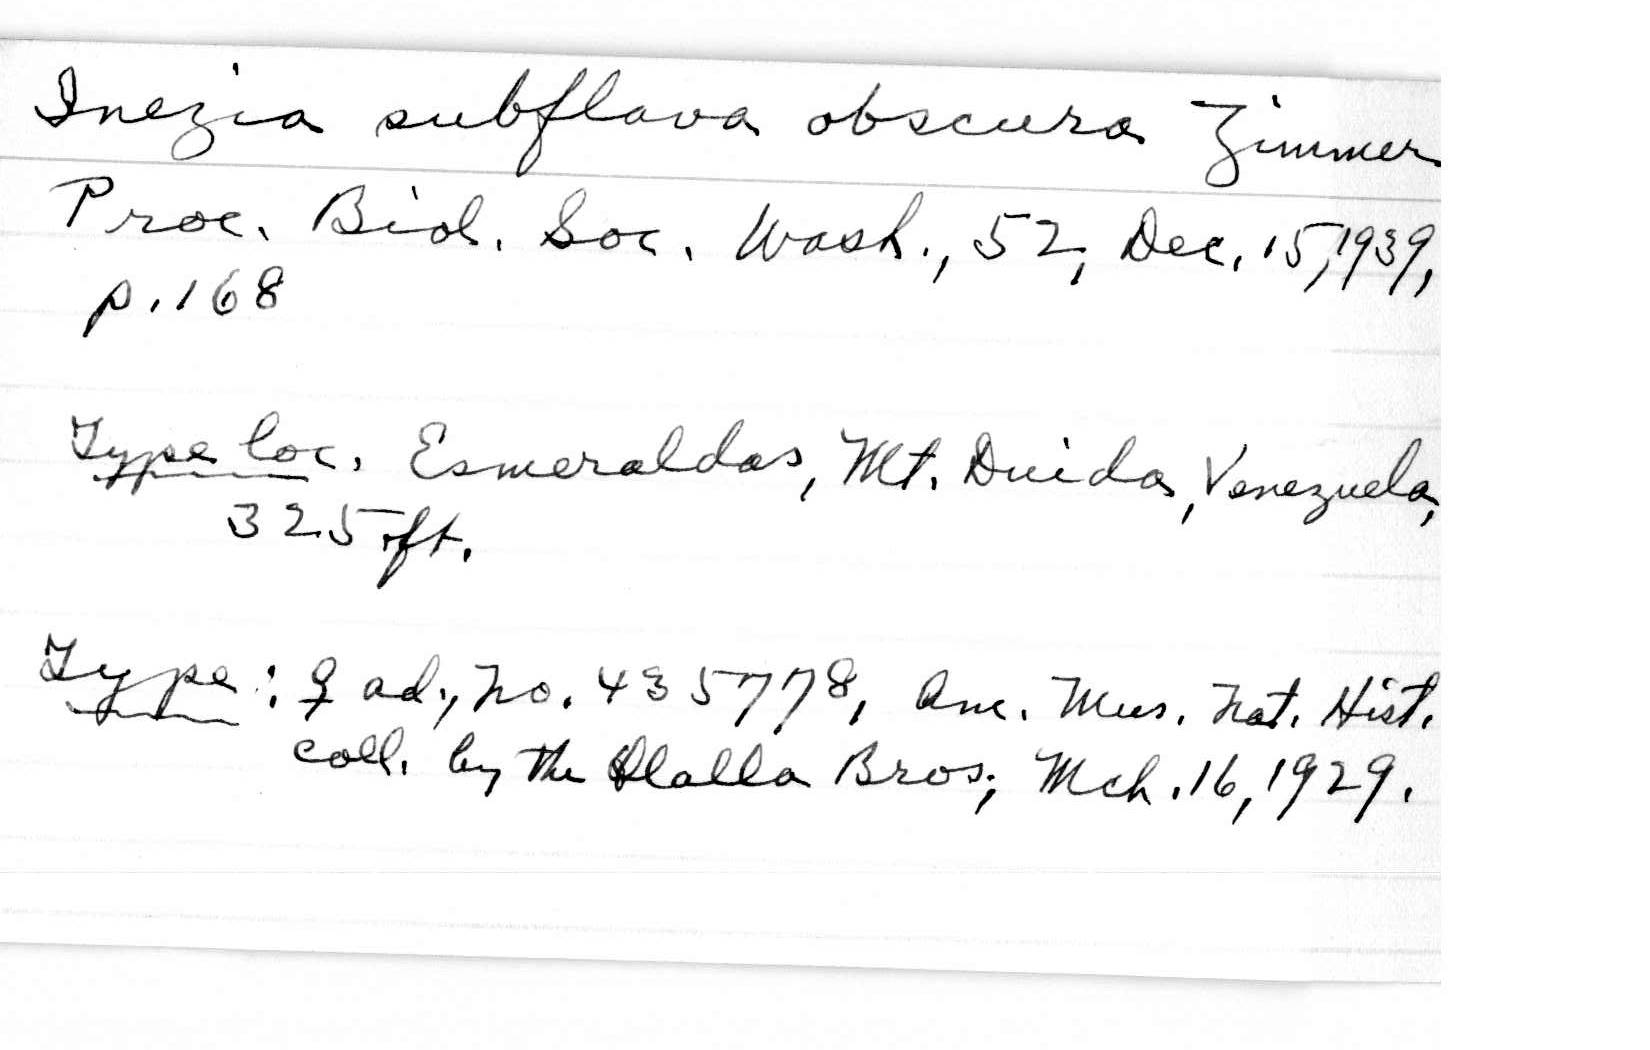 Inezia subflava obscura Zimmer
Proc. Biol. Soc. Wash., 52, Dec. 15, 1939,
p. 168
Type loc. Esmeraldas, Mt. Duida, Venezuela,
325 ft.
Type: ♀ ad., no. 435778, Am. Mus. Nat. Hist.
coll. by the Olalla Bros; Mch. 16, 1929.